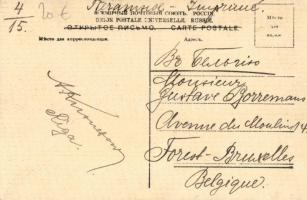 4/15.
20€
Drucksache - Imprimé.
ВСЕМІРНЫЙ ПОЧТОВЫЙ СОЮЗЪ. РОССІЯ.
UNION POSTALE UNIVERSELLE. RUSSIE.
ОТКРЫТОЕ ПИСЬМО. — CARTE POSTALE.
Мѣсто для корреспонденціи.
Адресъ.
Мѣсто
для
марки
Въ Бельгію
Monsieur
Gustave Borremans
Avenue du Moulin 4
Forest-Bruxelles
Belgique.
Riga.